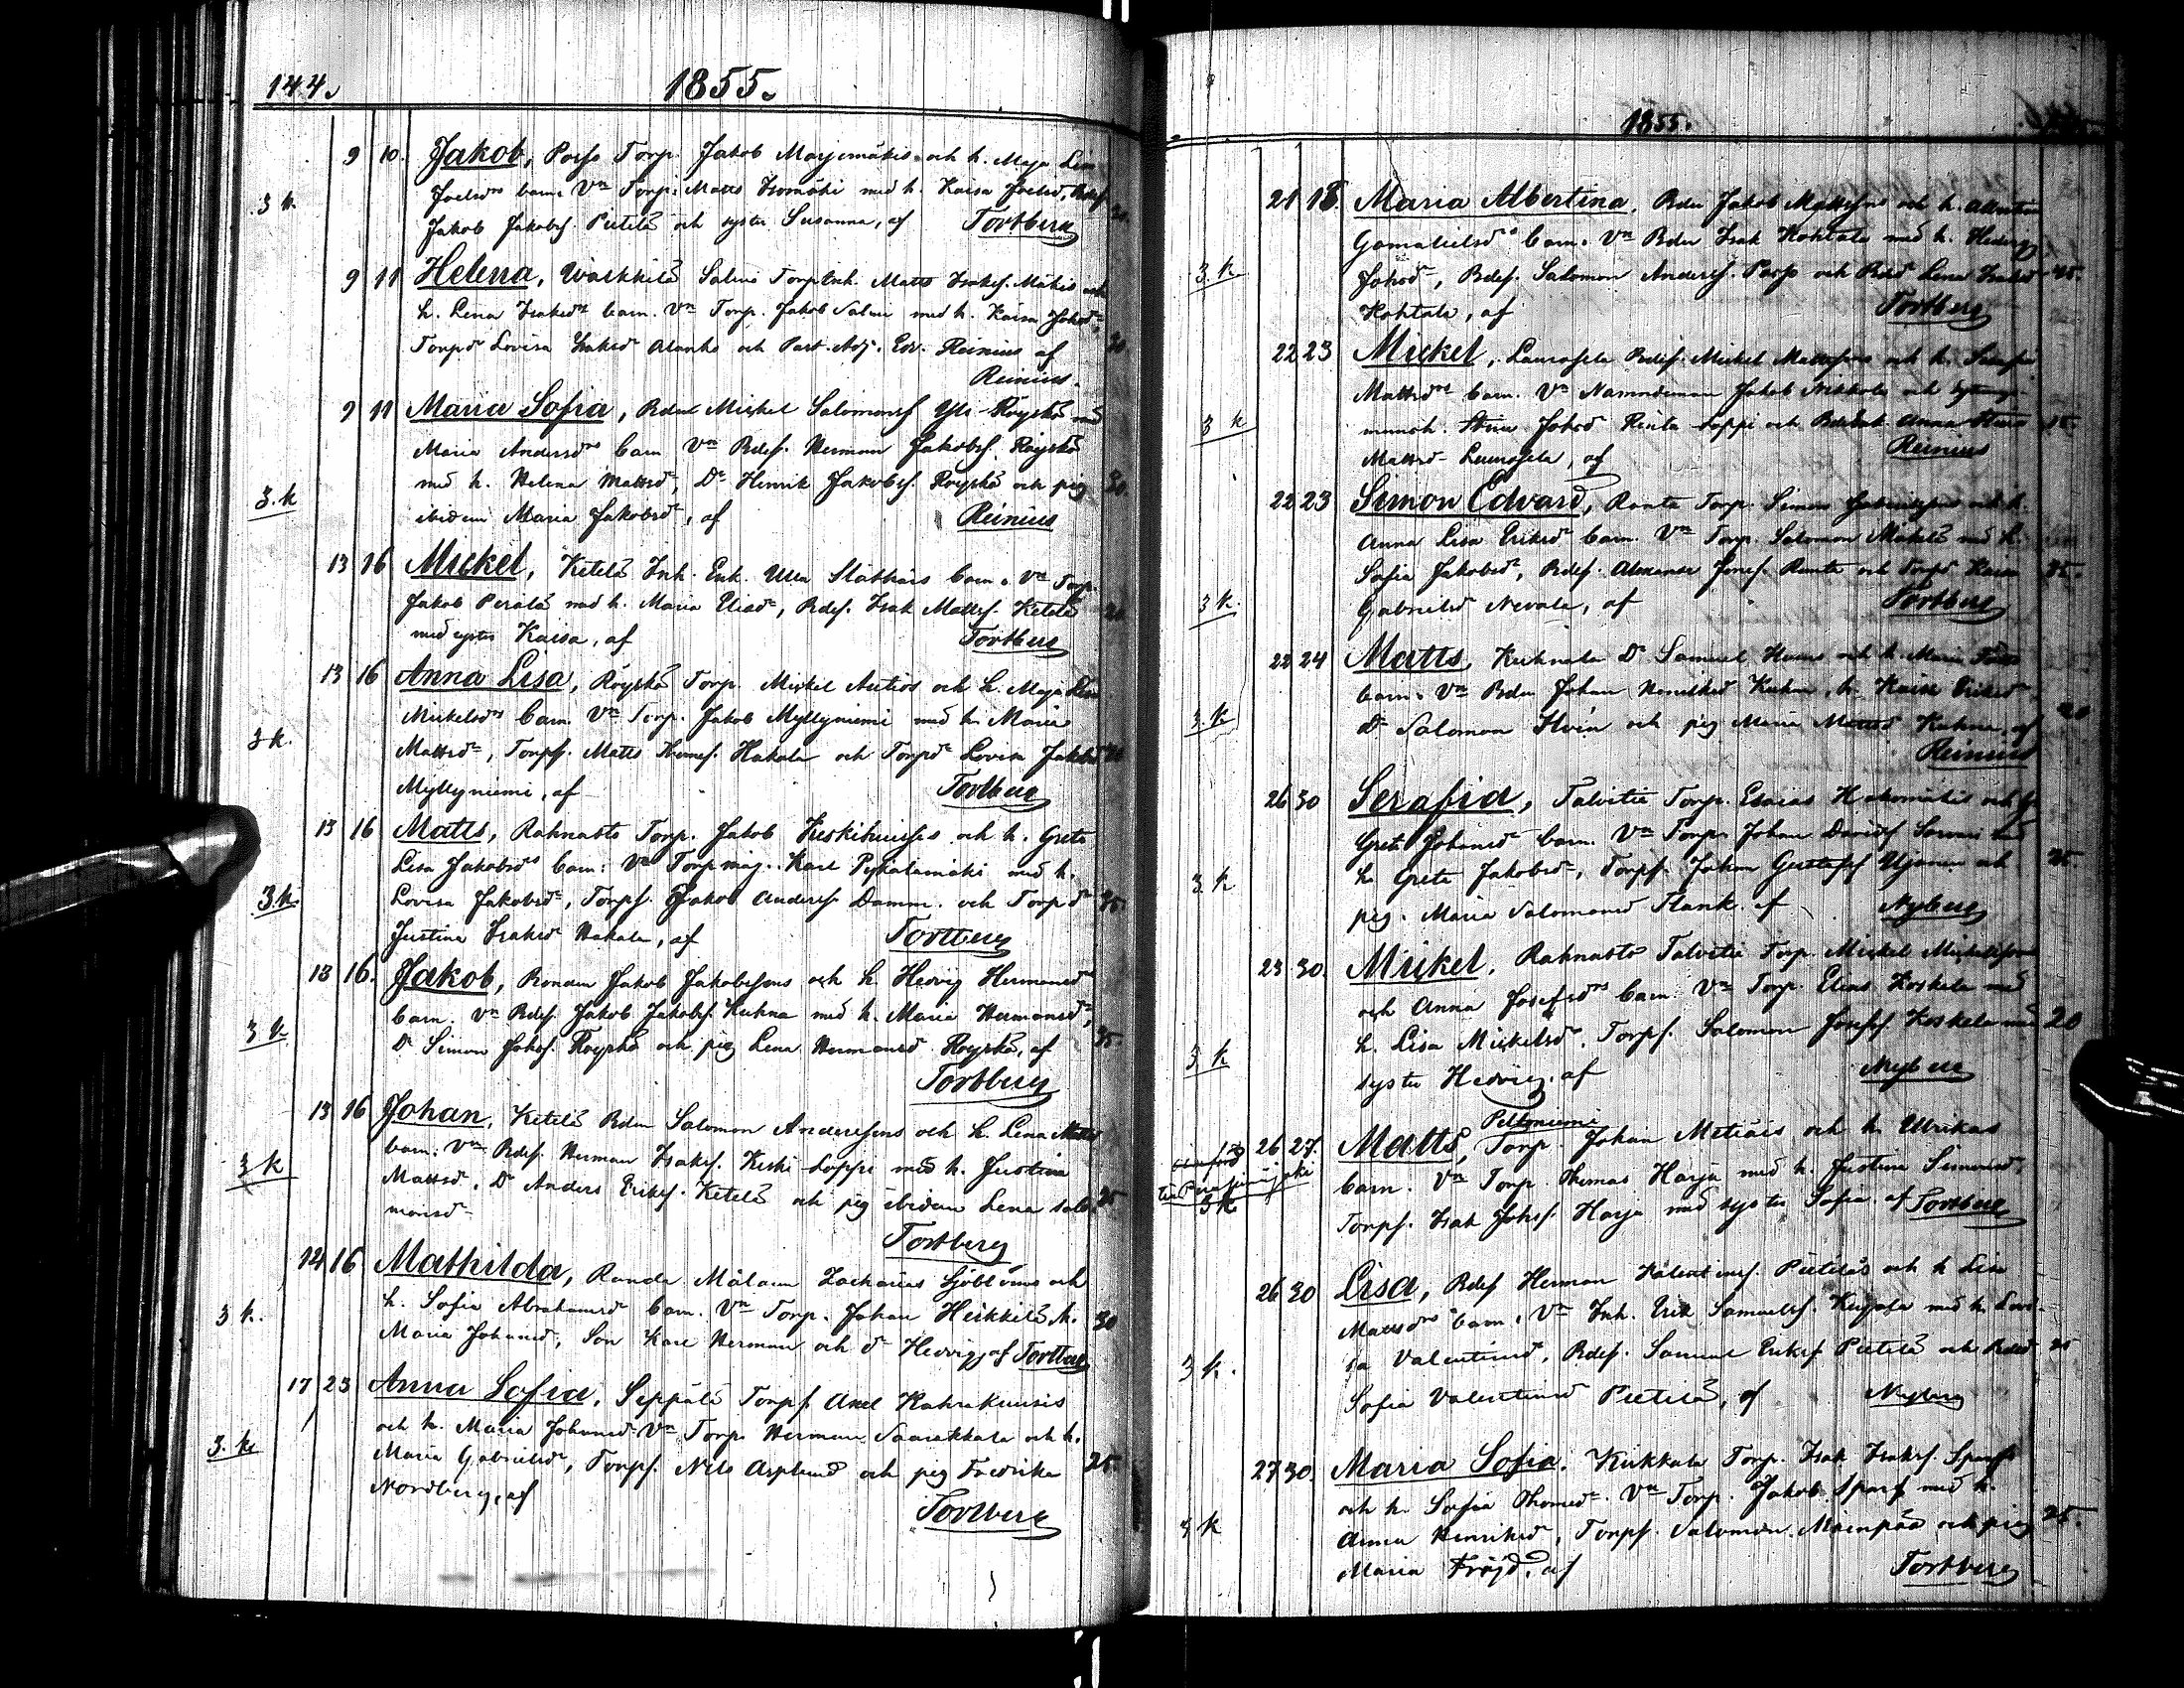 144.
1855.
9 10. Jakob, Porss Torp. Jakob Marjemäkis och h. Maja Lisa
3 k. Joelsdrs barn. Vn Torp. Matts Isomäki med h. Kaisa Joelsd,
Jakob Jakobs. Pietilä och syster Susanna, af Tortberg
9 11 Helena, Salmi Matts Isaks. Mäkis och
h. Lena Isaksdrs barn. Vn Torp. Jakob Salmi med h. Kaisa Johsdr,
Torpdr Lovisa Isaksd Alanko och Past. Adj. Edv. Reinius af 20
Reinius.
9 11 Maria Sofia, Mickel Salomons Yli-Röyskö och
Maria Andersdrs barn Vn Bdes. Herman Jakobs. Röyskö
med h. Helena Mattsdr, Dr Henrik Jakobs. Röyskö och pig 20.
3.k ibidem Maria Jakobsdr, af Reinius
13 16 Mickel, Ketelä Inh. Enk. Ulla Slåthårs barn. Vn Torp.
Jakob Perälä med h. Maria Eliasdr, Bdes. Isak Matts. Ketelä 20
med syster Kaisa, af Tortberg
13 16 Anna Lisa, Röyskö Torp. Mickel Autios och h. Maja Lisa
Mickelsdrs barn. Vn Torp. Jakob Myllyniemi med h. Maria
3 k. Mattsdr, Torps. Matts Thomes. Hakala och Torpdr Lovisa Jakobsd
Myllyniemi, af Tortberg
13 16 Matts, Rahnasto Torp. Jakob och h. Greta
Lisa Jakobsdrs barn: Vn Torp. Karl med h.
3.k Lovisa Jakobsdr, Torps. Jakob Anders. Damm. och Torpdr 35.
Justina Isaksdr Hakala, af Tortberg
13 16. Jakob, Bonden Jakob Jakobssons och h. Hedvig Hermansd
barn. Vn Bdes. Jakob Jakobs. Kuhna med h. Maria Hermansdr,
3 k Dr Simon Jakobs. Röyskö och pig Lena Hermansd Röyskö, af 35.
Tortberg
13 16 Johan, Ketelä Bden Salomon Anderssons och h. Lena Matts
barn. Vn Bdes. Herman Isaks. Keski-Loppi med h. Justina
3 k Mattsdr. Dr Anders Eriks. Ketelä och pig ibidem Lena Salo- 25
monsdr
Tortberg
14 16 Mathilda, Randa Målaren Zacharias Sjöbloms och
h. Sofia Abrahamsdr barn. Vn Torp. Johan Heikkilä h.
3 k. Maria Johansd, Son Karl Herman och dr Hedvig, af Tortberg 30
17 23 Anna Sofia, Seppälä Torps. Axel
och h. Maria Johansd. Vn Torp. Herman Saarakkala och h.
3. k Maria Gabrielsdr, Torps. Nils Asplund och pig Fredrika 25
Nordberg, af
Tortberg
1855.
21 18. Maria Albertina, Bden Jakob Mattssons och h. Albertina
Gamalielsdrs barn. Vn Bden Isak Kohtala med h. Hedvig
3.k Johsdr, Bdes. Salomon Anders. Porss och Bdsd Lena Isaksd 45.
Kohtala, af Tortberg
22 23 Mickel, Laurosela Bdes. Mickel Mattssons och h. Serafia
Mattsdrs barn. Vn Nämndeman Jakob Nikkola och
3 k Johsd Rinta-Loppi och Anna 15.
Mattsd Laurosela, af Reinius
22 23 Simon Edvard, Ranta Torp. Simon Gabrielssons och h.
Anna Lisa Eriksdr barn. Vn Torp. Salomon Mäkelä med h.
Sofia Jakobsdr, Bdes. Alexander Jones. Ranta och Torpd Kaisa 35
3 k. Gabrielsd Nevala, af Tortberg
22 24 Matts, Kuhnala Dr Samuel och h. Maria
barn. Vn Bden Johan Kuhna, h. Kaisa Eriksdr,
3.k Dr Salomon och pig Maria Mattsd Kuhna, af 20
Reinius
26 30 Serafia, Talvitie Torp. Esaias Hakomäkis och h.
Greta Johansdr barn. Vn Torp. Johan Davids. med
3.k h. Greta Jakobsdr, Torps. Johan Gustafs. Ujanen och 25
pig. Maria Salomonsd Plank. af Nyberg
23 30. Mickel. Rahnasto Talvitie Torp. Mickel Mickelssons
och Anna Josefsdrs barn. Vn Torp. Elias Koskela med
3 k h. Lisa Mickelsdr. Torps. Salomon Josefs. Koskela med 20
syster Hedvig. af Nyberg
Peltoniemi
26 27. Matts, Torp. Johan Metiäis och h. Ulrikas
till Peräseinäjoki barn. Vn Torp. Thomas Harja med h. Justina Simonsd,
3 k Torps. Isak Johs. Harja med syster Sofia. af Tortberg
26 30 Lisa, Bdes Herman Valentins. Pietiläs och h. Lisa
Mattsdrs barn. Vn Inh. Erik Samuels. med h. Lovi-
3 k. sa Valentinsd, Bdes. Samuel Eriks. Pietilä och Bdsd 25
Sofia Valentinsd Pietilä, af Nyberg
27 30. Maria Sofia. Kukkala Torp. Isak Isaks. Sparfs
och h. Sofia Thomesdr. Vn Torp. Jakob Sparf med h.
3 k Anna Henriksd, Torps. Salomon Mäenpää och pig 25.
Maria Fröjd. af Tortberg